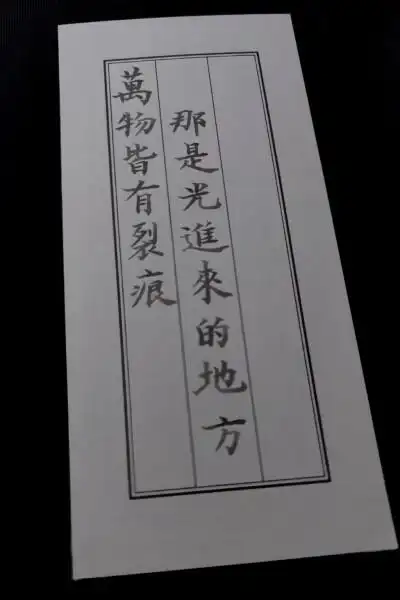 萬物皆有裂痕
那是光進來的地方